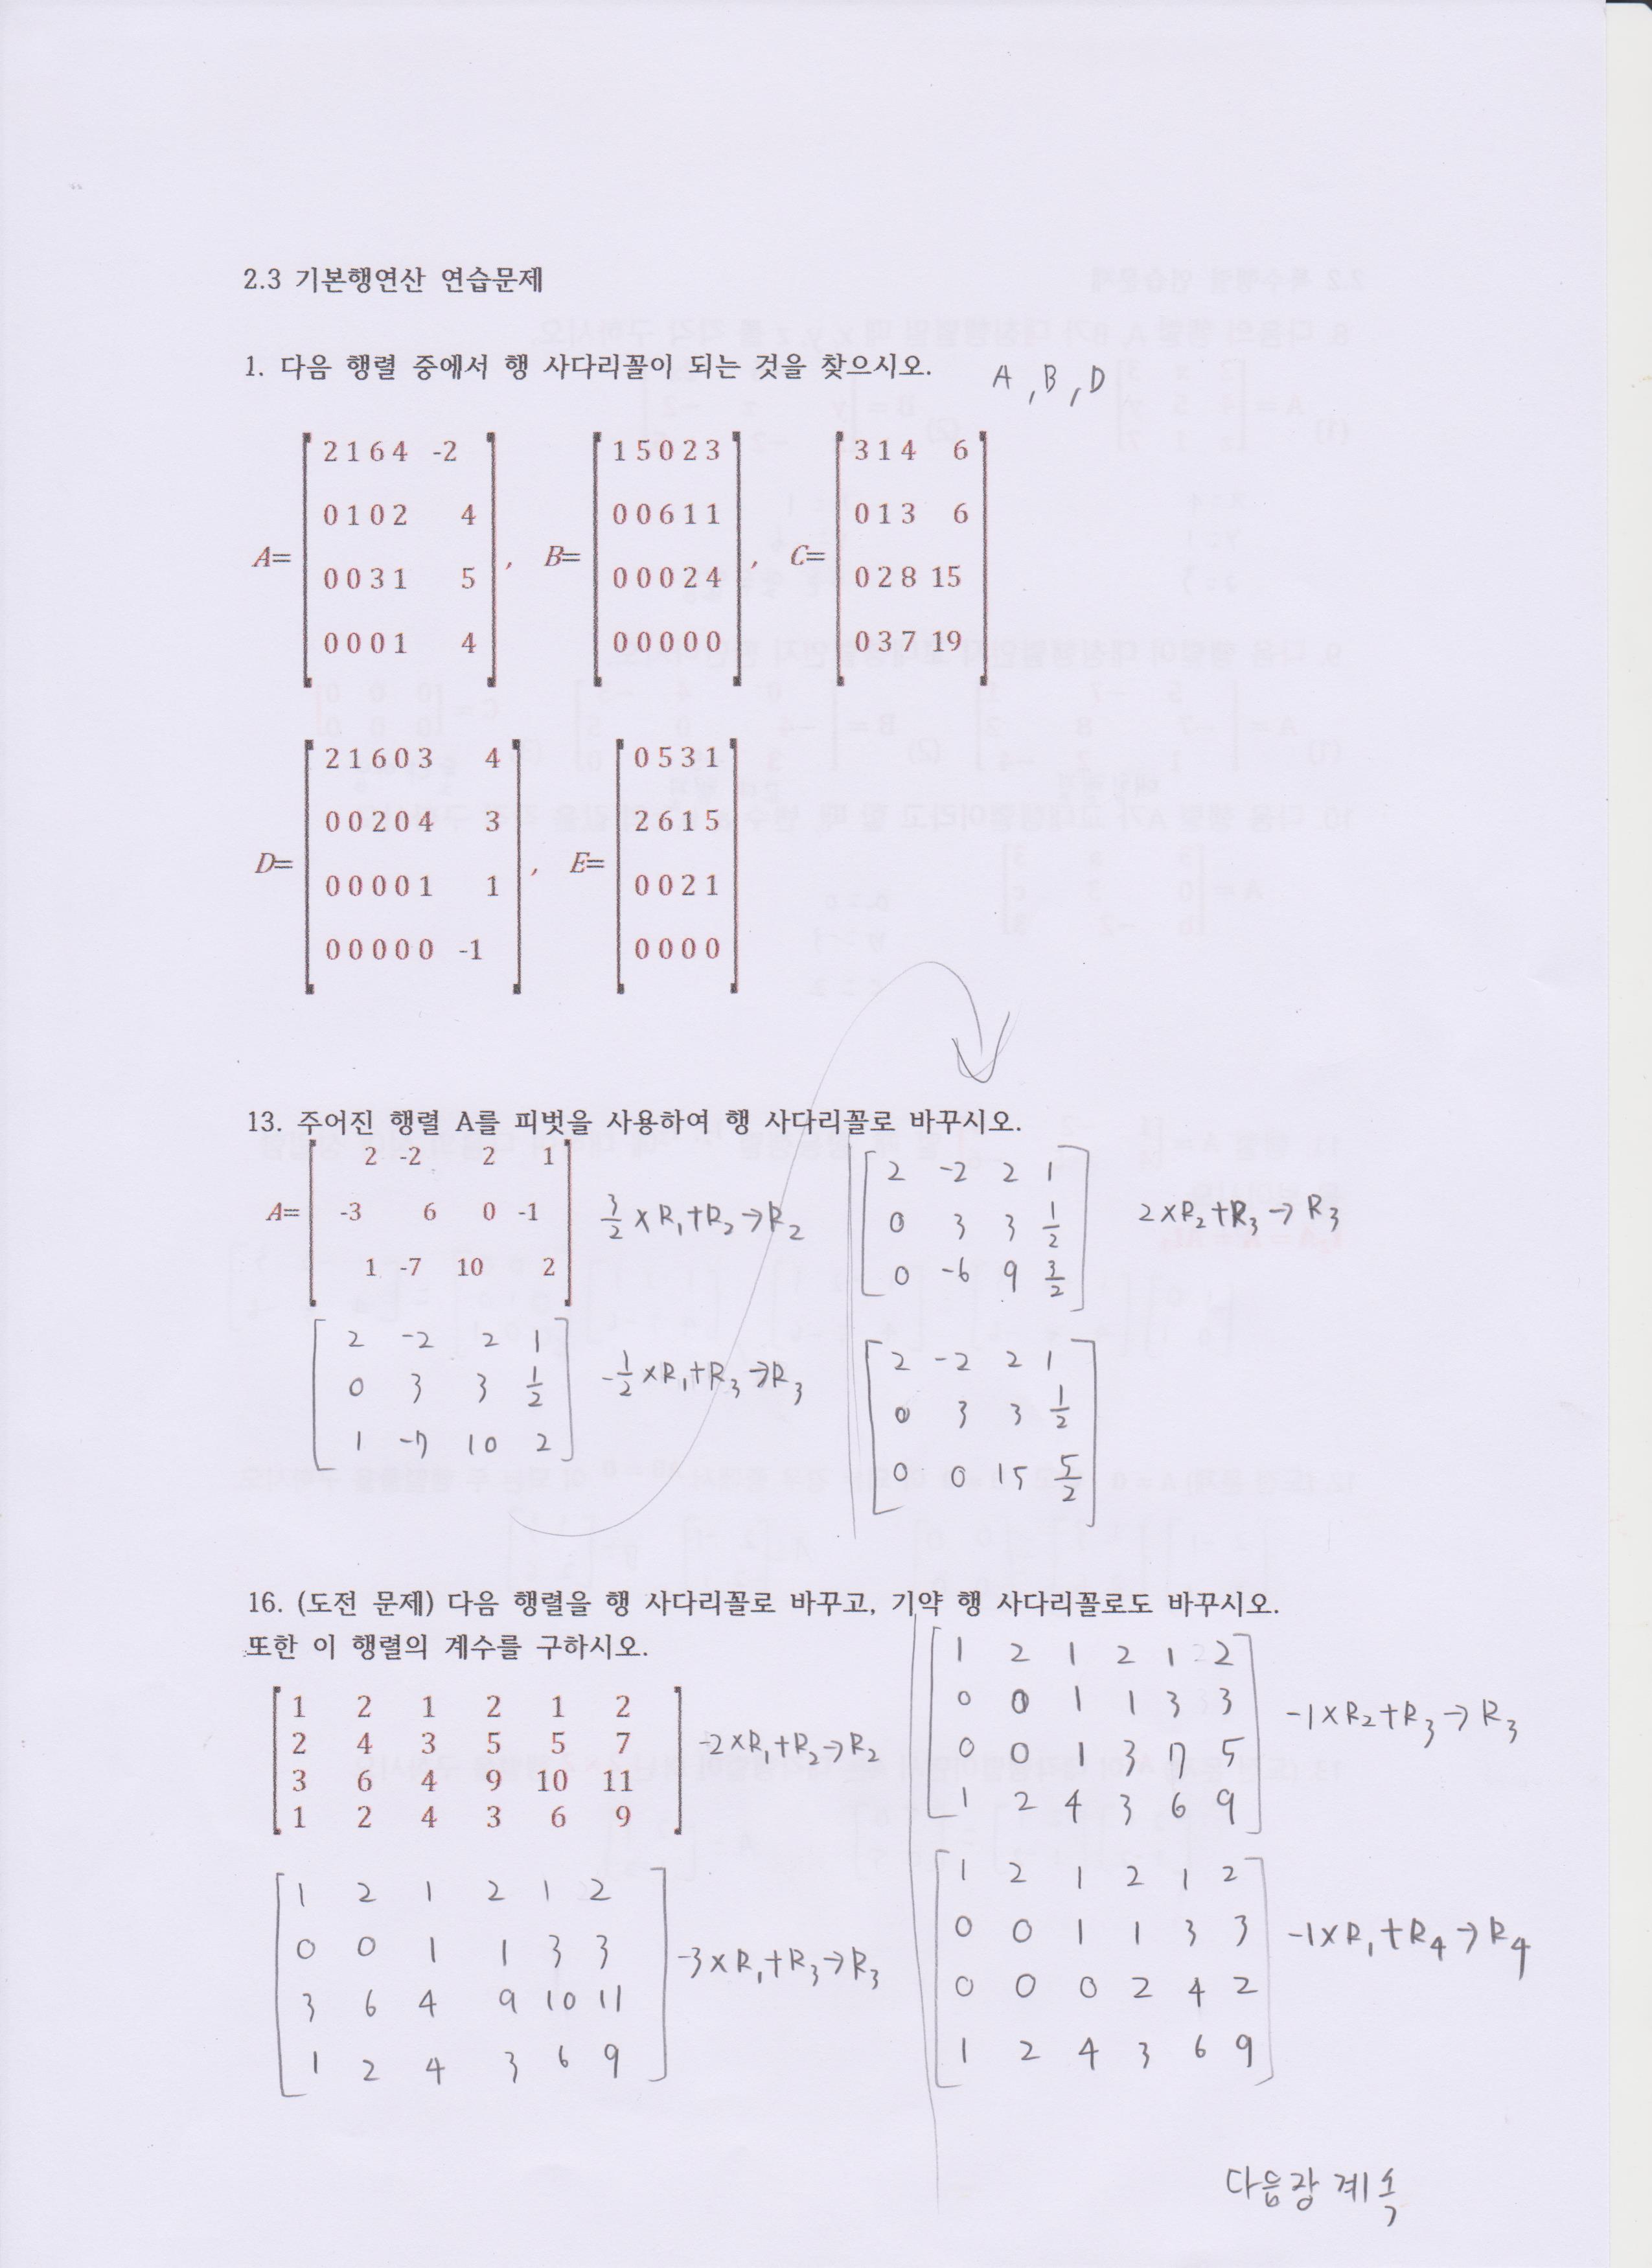 2.3 기본행연산 연습문제
1. 다음 행렬 중에서 행 사다리꼴이 되는 것을 찾으시오. A, B, D
A= 2 1 6 4 -2
0 1 0 2 4
0 0 3 1 5
0 0 0 1 4
, B= 1 5 0 2 3
0 0 6 1 1
0 0 0 2 4
0 0 0 0 0
, C= 3 1 4 6
0 1 3 6
0 2 8 15
0 3 7 19
D= 2 1 6 0 3 4
0 0 2 0 4 3
0 0 0 0 1 1
0 0 0 0 0 -1
, E= 0 5 3 1
2 6 1 5
0 0 2 1
0 0 0 0
13. 주어진 행렬 A를 피벗을 사용하여 행 사다리꼴로 바꾸시오.
A= 2 -2 2 1
-3 6 0 -1
1 -7 10 2
3/2 × R₁+R₂→R₂
2 -2 2 1
0 3 3 1/2
1 -7 10 2
-1/2 ×R₁+R₃→R₃
2 -2 2 1
0 3 3 1/2
0 -6 9 3/2
2×R₂+R₃→R₃
2 -2 2 1
0 3 3 1/2
0 0 15 5/2
16. (도전 문제) 다음 행렬을 행 사다리꼴로 바꾸고, 기약 행 사다리꼴로도 바꾸시오.
또한 이 행렬의 계수를 구하시오.
1 2 1 2 1 2
2 4 3 5 5 7
3 6 4 9 10 11
1 2 4 3 6 9
-2×R₁+R₂→R₂
1 2 1 2 1 2
0 0 1 1 3 3
3 6 4 9 10 11
1 2 4 3 6 9
-3×R₁+R₃→R₃
1 2 1 2 1 2
0 0 1 1 3 3
0 0 1 3 7 5
1 2 4 3 6 9
-1×R₂+R₃→R₃
1 2 1 2 1 2
0 0 1 1 3 3
0 0 0 2 4 2
1 2 4 3 6 9
-1×R₁+R₄→R₄
다음장 계속